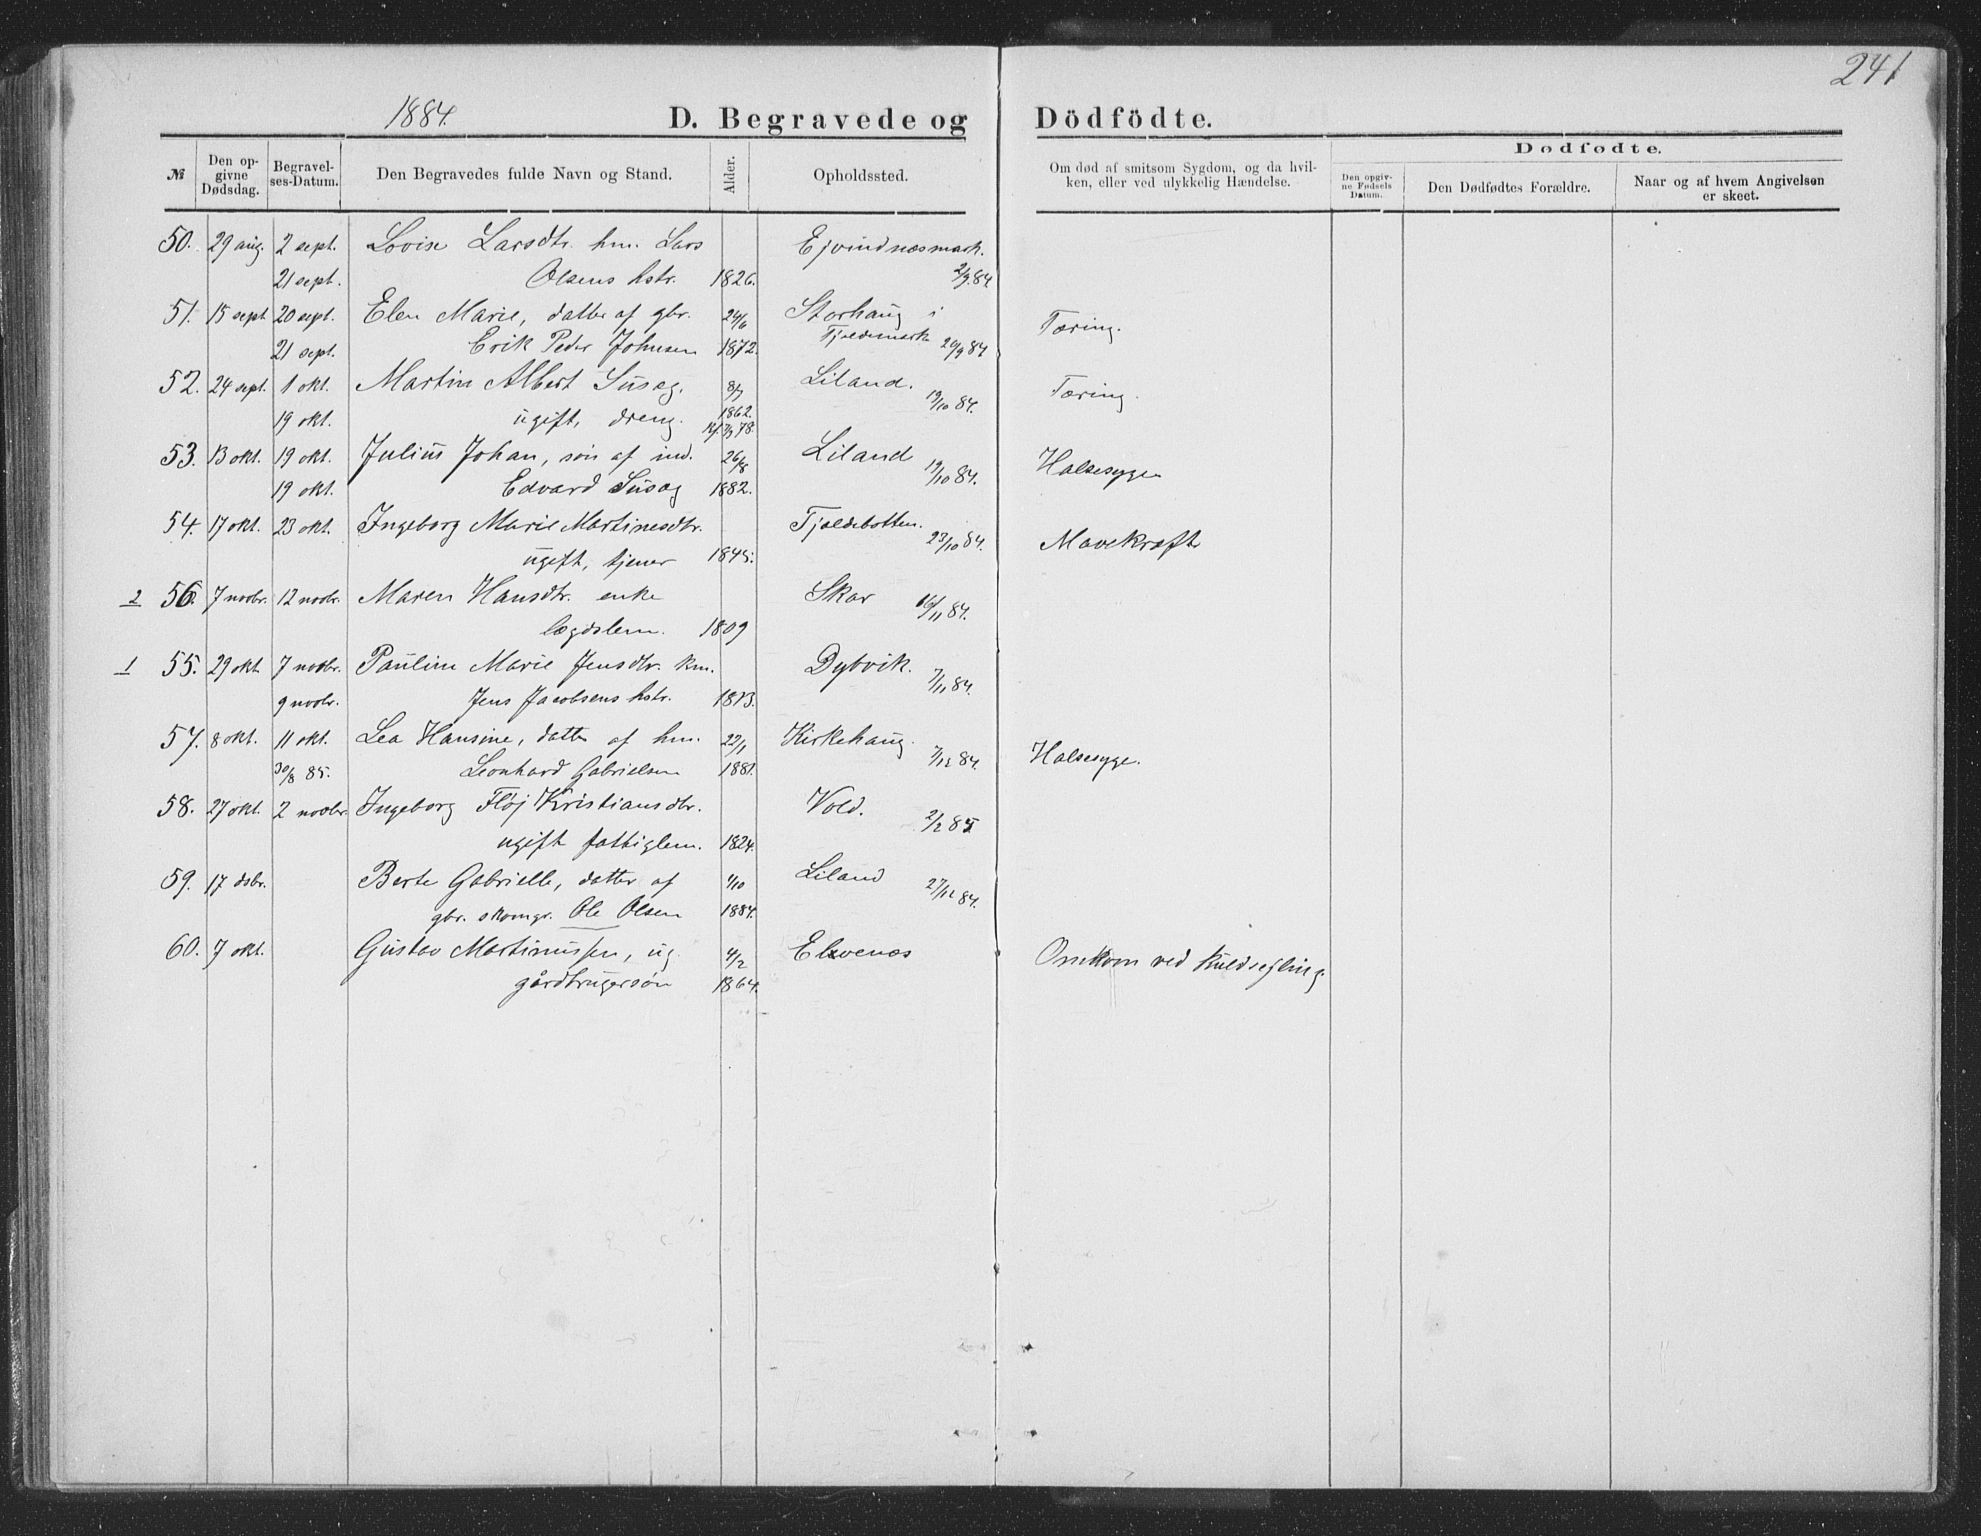 241
1884.
D. Begravede og Dödfödte.
№
Den op-
givne
Dødsdag.
Begravel-
ses-Datum.
Den Begravedes fulde Navn og Stand.
Alder.
Opholdssted.
Om død af smitsom Sygdom, og da hvil-
ken, eller ved ulykkelig Hændelse.
Dødfødte.
Den opgiv-
ne Fødsels
Datum.
Den Dødfødtes Forældre.
Naar og af hvem Angivelsen
er skeet.
50. 29 aug. 2 sept. Lovise Larsdtr. hm. Lars Ejvindnæsmark.
21 sept. Olsens hstr. 1826. 2/9.84
51. 15 sept 20 sept. Elen Marie, datter af gbr. 24/6 Storhaug i Tæring.
21 sept. Erik Peder Johnsen 1872. Tjeldemark 20/9 84
52. 24 sept. 1 okt. Martin Albert Susæg, 8/7 Liland. Tæring.
19 okt. ugift, dreng. 1862. 19/10 84.
53. 13 okt. 19 okt. Julius Johan, søn af ind. 26/8 Liland 19/10 84. Halsesyge
19 okt. Edvard Susæg 1882.
54. 17 okt. 23 okt. Ingeborg Marie Martinesdtr. Tjeldebotten. 23/10 84. Mavekræft
ugift, tjener 1845.
2 56. 7 novbr. 12 novbr. Maren Hansdtr. enke Skar 16/11 84.
lægdslem. 1809
1 55. 29 okt 7 novbr. Pauline Marie Jensdtr. km. Dybvik. 7/11 84.
9 novbr. Jens Jacobsens hstr. 1813.
57. 8 okt. 11 okt. Lea Hansine, datter af hm. 22/1 Kirkehaug. 7/12 84. Halsesyge.
30/8 85. Leonhard Gabrielsen 1881.
58. 27 okt. 2 novbr. Ingeborg Fløj Kristiansdtr. Vold. 2/2 85
ugift fattiglem. 1824.
59. 17 dsbr. Berte Gabrielle, datter af 4/10 Liland 27/12 84.
gbr. skomgr. Ole Olsen 1884.
60. 7 okt. Gustav Martinussen, ug. 4/2 Elvenæs Omkom ved kuldsejling.
gårdbrugersøn 1864.